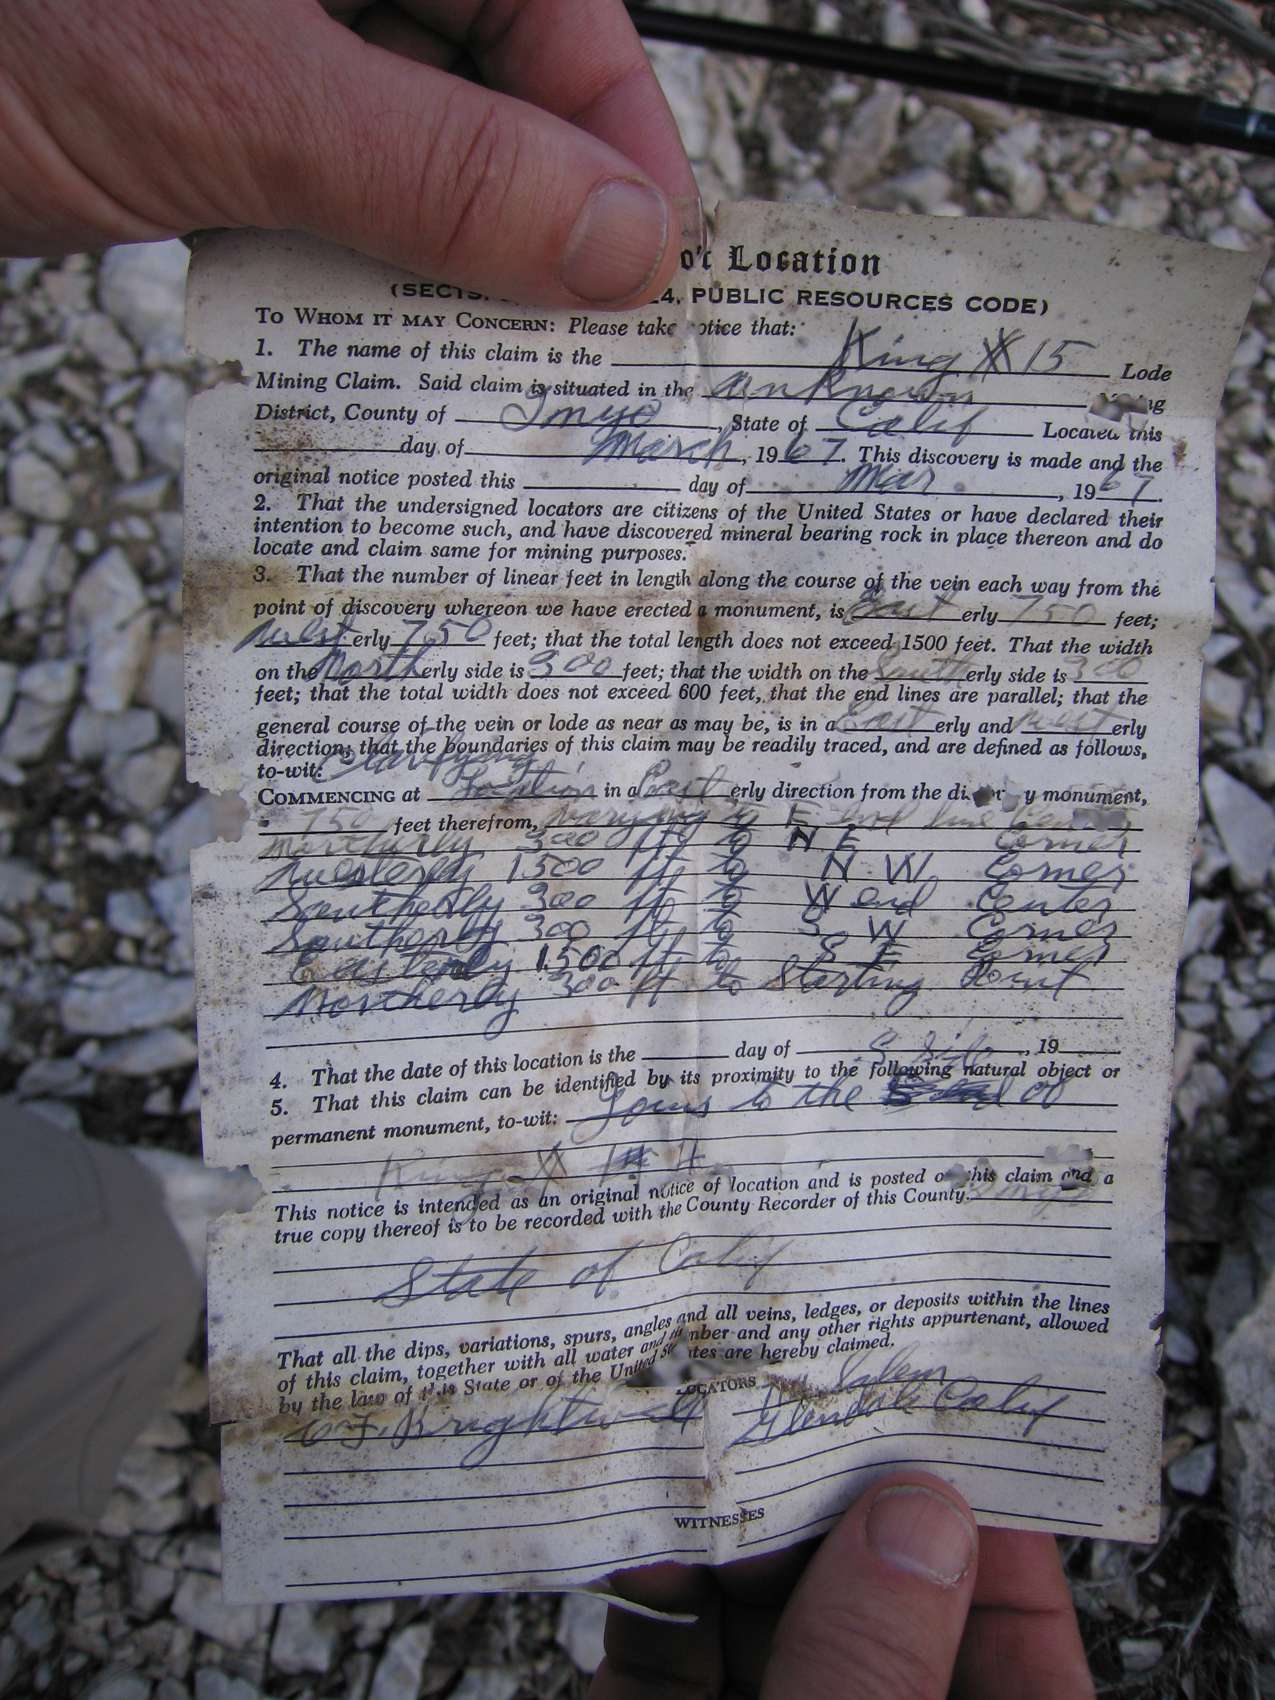 Location
(SECTS. 24, PUBLIC RESOURCES CODE)
TO WHOM IT MAY CONCERN: Please take otice that:
1. The name of this claim is the King # 15 Lode
Mining Claim. Said claim is situated in the unknown
District, County of Inyo, State of Calif Located this
day of March, 1967. This discovery is made and the
original notice posted this day of Mar, 1967.
2. That the undersigned locators are citizens of the United States or have declared their
intention to become such, and have discovered mineral bearing rock in place thereon and do
locate and claim same for mining purposes.
3. That the number of linear feet in length along the course of the vein each way from the
point of discovery whereon we have erected a monument, is East erly 750 feet;
West erly 750 feet; that the total length does not exceed 1500 feet. That the width
on the North erly side is 300 feet; that the width on the South erly side is 300
feet; that the total width does not exceed 600 feet, that the end lines are parallel; that the
general course of the vein or lode as near as may be, is in a East erly and West erly
direction; that the boundaries of this claim may be readily traced, and are defined as follows,
to-wit: Clarifying
COMMENCING at Location in a East erly direction from the y monument,
750 feet therefrom, to E end line
Northerly 300 ft to N E Corner
Westerly 1500 ft to N W Corner
Southerly 300 ft to W end Center
Southerly 300 ft to S W Corner
Easterly 1500 ft to S E Corner
Northerly 300 ft to Starting Point
4. That the date of this location is the day of , 19
S Side
5. That this claim can be identified by its proximity to the following natural object or
permanent monument, to-wit: Joins to the of
King # 14
This notice is intended as an original notice of location and is posted on this claim and a
true copy thereof is to be recorded with the County Recorder of this County. Inyo
State of Calif
That all the dips, variations, spurs, angles and all veins, ledges, or deposits within the lines
of this claim, together with all water and number and any other rights appurtenant, allowed
by the law of this State or of the United States are hereby claimed.
LOCATORS Salem
C F. Brightwell Glendale Calif
WITNESSES